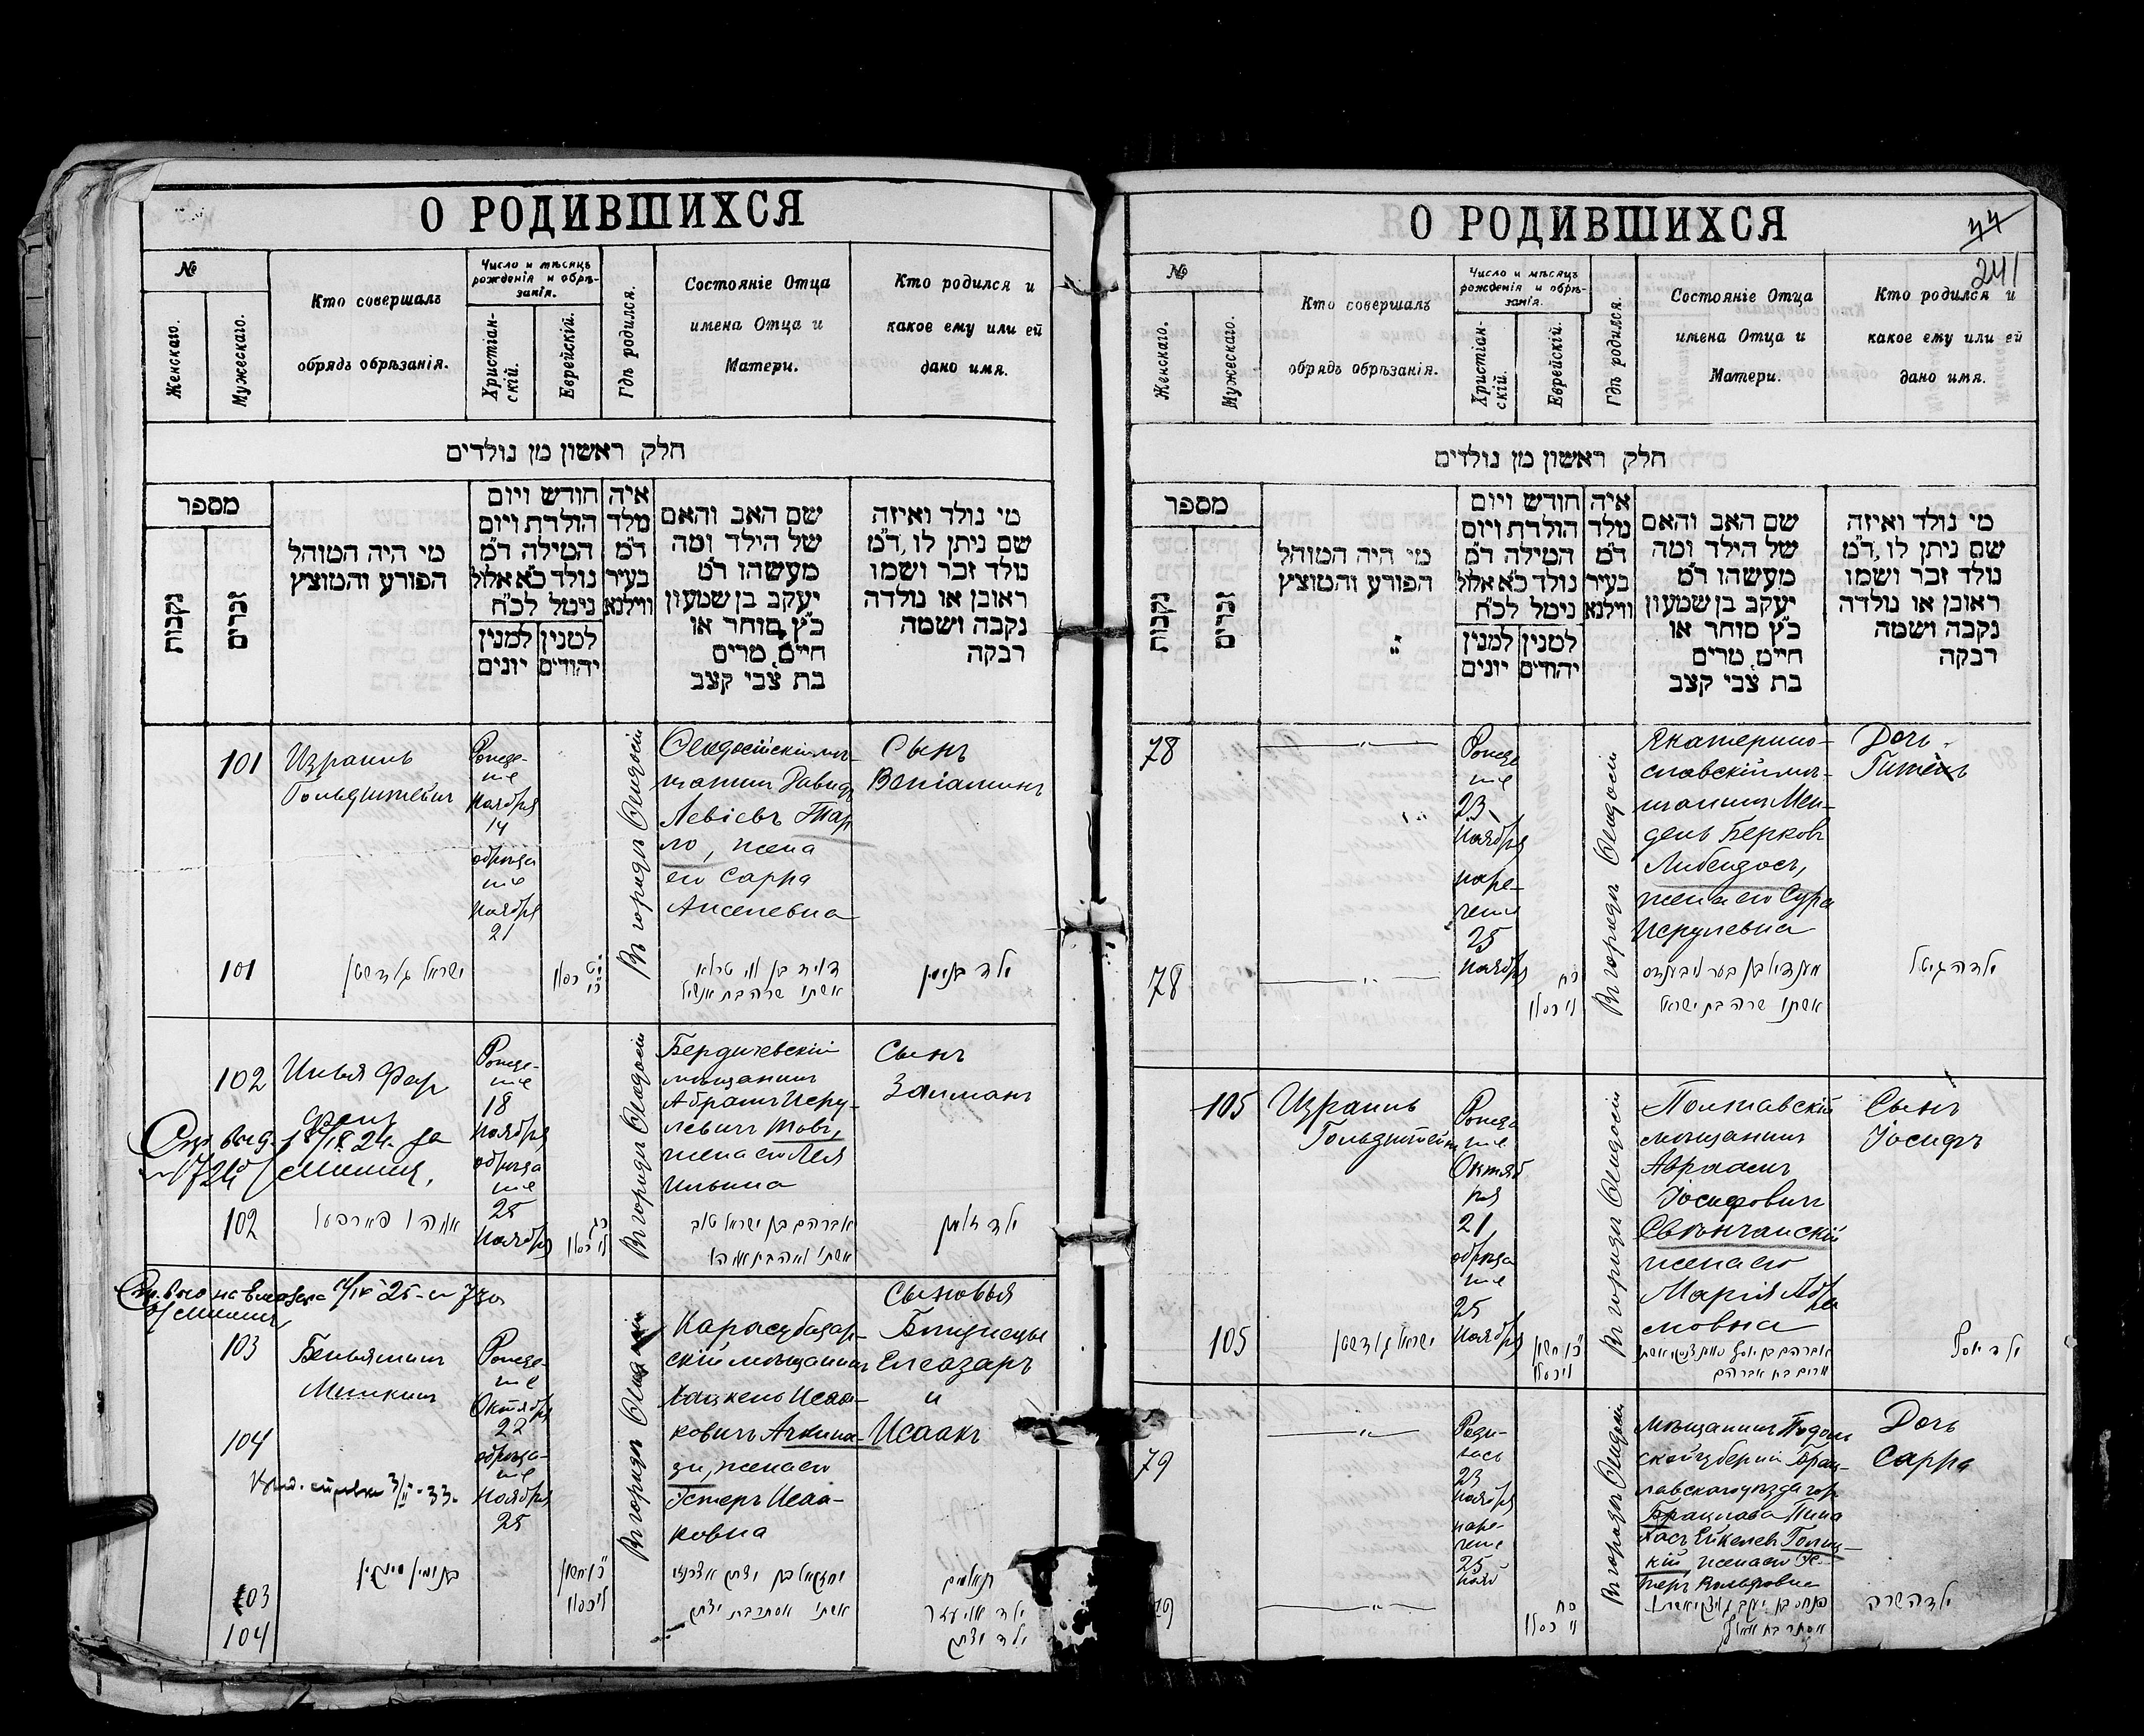 О РОДИВШИХСЯ
№
Женскаго.
Мужескаго.
Кто совершалъ
обрядъ обрѣзанія.
Число и мѣсяцъ
рожденія и обрѣ-
занія.
Христіан-
скій.
Еврейскій.
Гдѣ родился.
Состояніе Отца
имена Отца и
Матери.
Кто родился и
какое ему или ей
дано имя.
חלק ראשון מן נולדים
מספר
נקבות
זכרים
מי היה המוהל
הפורע והמוצץ
חודש ויום
הולדת ויום
המילה ד״מ
נולד כ״א אלול
ניטל לכ״ח
למנין
יונים
למנין
יהודים
איה
מלד
ד״מ
בעיר
ווילנא
שם האב והאם
של הילד ומה
מעשהו ד״מ
יעקב בן שמעון
כ״ץ סוחר או
חייט, מרים
בת צבי קצב
מי נולד ואיזה
שם ניתן לו, ד״מ
נולד זכר ושמו
ראובן או נולדה
נקבה ושמה
רבקה
101
Израиль
Гольдштейнъ
Рожде-
ніе
Ноября
14
обрѣза
ніе
Ноября
21
Въ городѣ Ѳеодосіи
Ѳеодосійскій мѣ-
щанинъ Давидъ
Левіевъ Тар
ло, жена
его Сарра
Анселевна
Сынъ
Веніаминъ
101
ישראל גולדשטיין
דויד בן לוי טרלא
אשתו שרה בת אנשיל
ילד בנימן
102
Илья Фар
Рожде-
ніе
18
Ноября
обрѣза
ніе
25
Ноября
Въ городѣ Ѳеодосіи
Бердичевскій
мѣщанинъ
Абрамъ Исру-
левичъ Товъ,
жена его Лея
Ильина
Сынъ
Залманъ
102
אברהם בן ישראל טוב
אשתו לאה בת אליהו
ילד זלמן
103
Беньяминъ
Минкинъ
104
Рожде-
ніе
Октября
22
обрѣза-
ніе
Ноября
25
Въ городѣ
Карасубазар-
скій мѣщанинъ
Хацкель Исаа-
ковичъ Ачкина-
зи, жена его
Эстеръ Исаа-
ковна
Сыновья
Близнецы
Елеазаръ
и
Исаакъ
103
104
בנימין מינקין
יחזקאל בן יצחק אשכנזי
אשתו אסתר בת יצחק
תאומים
ילד אליעזר
ילד יצחק
О РОДИВШИХСЯ
44
241
№
Женскаго.
Мужескаго.
Кто совершалъ
обрядъ обрѣзанія.
Число и мѣсяцъ
рожденія и обрѣ-
занія.
Христіан-
скій.
Еврейскій.
Гдѣ родился.
Состояніе Отца
имена Отца и
Матери.
Кто родился и
какое ему или ей
дано имя.
חלק ראשון מן נולדים
מספר
נקבות
זכרים
מי היה המוהל
הפורע והמוצץ
חודש ויום
הולדת ויום
המילה ד״מ
נולד כ״א אלול
ניטל לכ״ח
למנין
יונים
למנין
יהודים
איה
מלד
ד״מ
בעיר
ווילנא
שם האב והאם
של הילד ומה
מעשהו ד״מ
יעקב בן שמעון
כ״ץ סוחר או
חייט, מרים
בת צבי קצב
מי נולד ואיזה
שם ניתן לו, ד״מ
נולד זכר ושמו
ראובן או נולדה
נקבה ושמה
רבקה
78
Рожде
ніе
23
Ноября
наре-
ченіе
25
Ноября
Въ городѣ Ѳеодосіи
Екатерино-
славскій мѣ-
щанинъ Мен-
дель Берковъ
Либендосъ,
жена его Сура
Исрулевна
Дочь
78
אשתו שרה בת ישראל
ילדה גיטל
105
Израиль
Гольдштейнъ
Рожде
ніе
Октяб
ря
21
обрѣза
ніе
25
Ноября
Въ городѣ Ѳеодосіи
Полтавскій
мѣщанинъ
Авраамъ
Іосифовичъ
жена его
Марія Абра
мовна
Сынъ
Іосифъ
105
ישראל גולדשטיין
מרים בת אברהם
ילד יוסף
79
Роди-
лась
23
Ноября
наре-
ченіе
25
Нояб
Въ городѣ Ѳеодосіи
Мѣщанинъ Подоль
ской губерніи Брац-
лавскаго уѣзда гор
Брацлава Пин
хасъ
кій, жена его Эс-
теръ Вольфовна
Дочь
Сарра
79
ילדה שרה